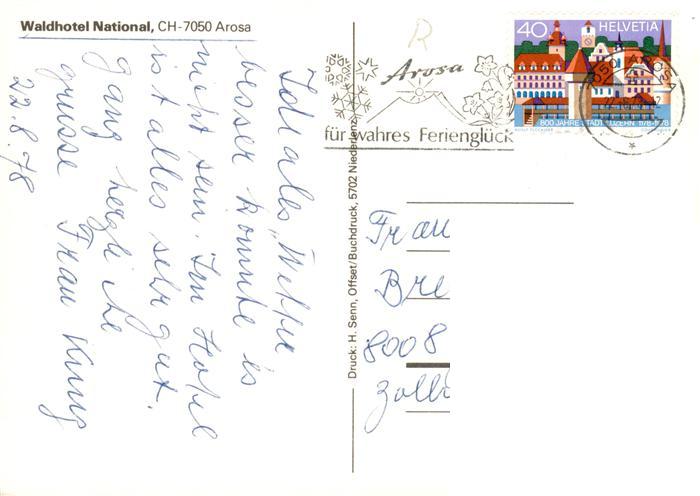 Waldhotel National, CH-7050 Arosa
Idales Wetter
besser konnte es
nicht sein. Im Hotel
ist alles sehr gut.
ganz herzliche
grüsse Frau Kung
22.8.78
Druck: H. Senn, Offset/Buchdruck, 5702 Niederlenz
R
Arosa
für wahres Ferienglück
40 HELVETIA
800 JAHRE STADT LUZERN 1178-1978
7050 AROSA
Frau
Bre
8008
Zoll